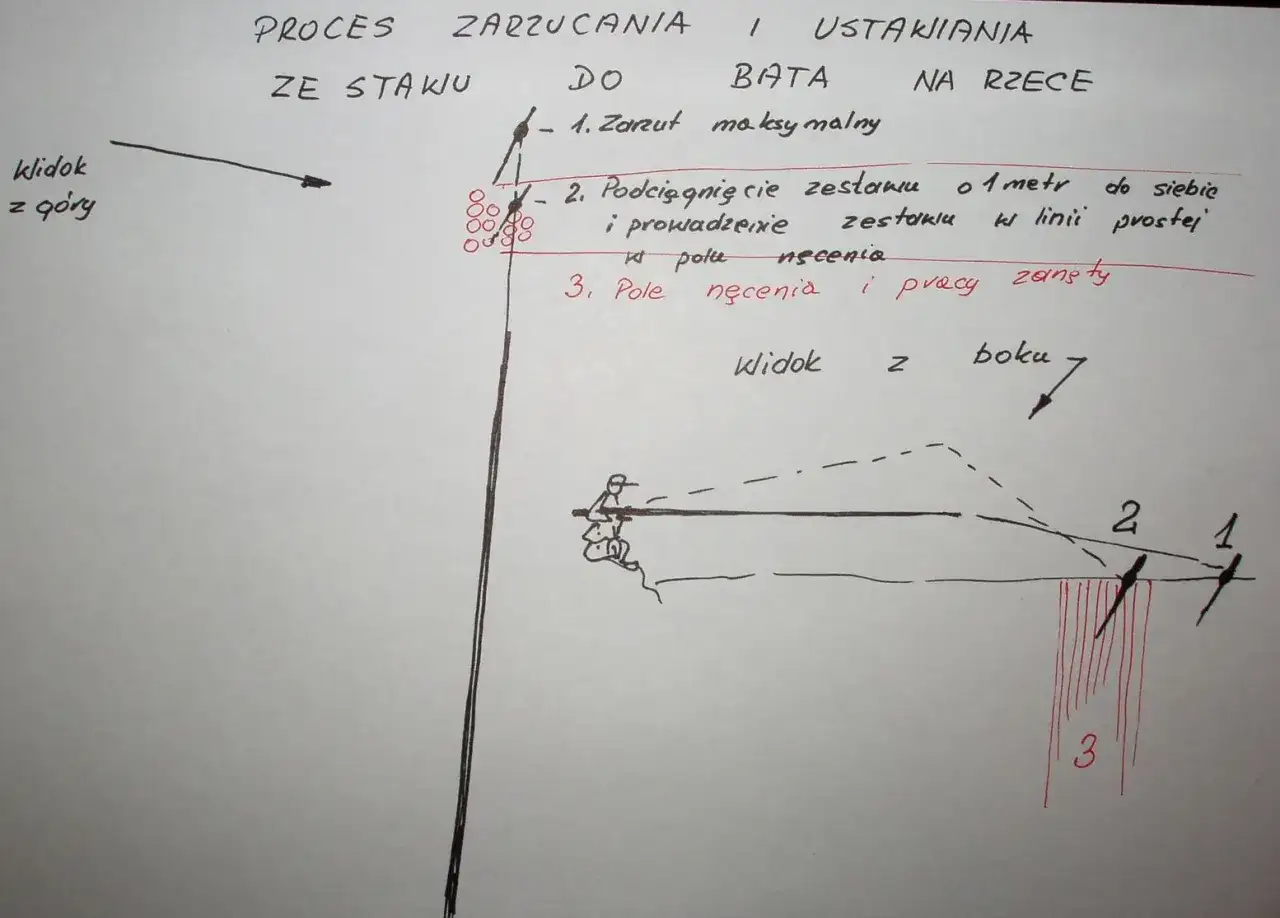 PROCES ZARZUCANIA I USTAWIANIA
ZE STAWU DO BATA NA RZECE
1. Zarzut maksymalny
Widok
z góry
2. Podciągnięcie zestawu o 1 metr do siebie
i prowadzenie zestawu w linii prostej
w polu nęcenia
3. Pole nęcenia i pracy zanęty
Widok z boku
2
1
3